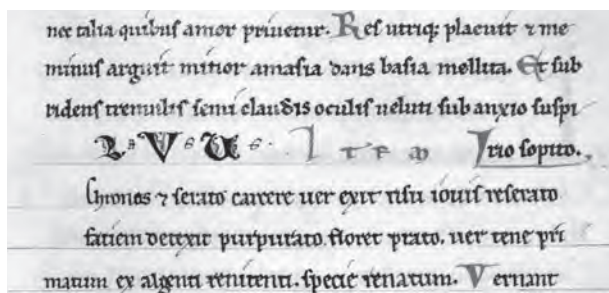 nec talia quibus amor priuetur. Res utriq; placuit ⁊ me
minus arguit mitior amasia dans basia mellita. Et sub
ridens tremulis semi clausis oculis ueluti sub anxio suspi
Item rio sopito.
Chronos ⁊ serato carcere uer exit risu iouis reserato
faciem detexit purpurato. floret prato. uer tene pri
matum ex algenti renitenti. specie renatum. Vernant